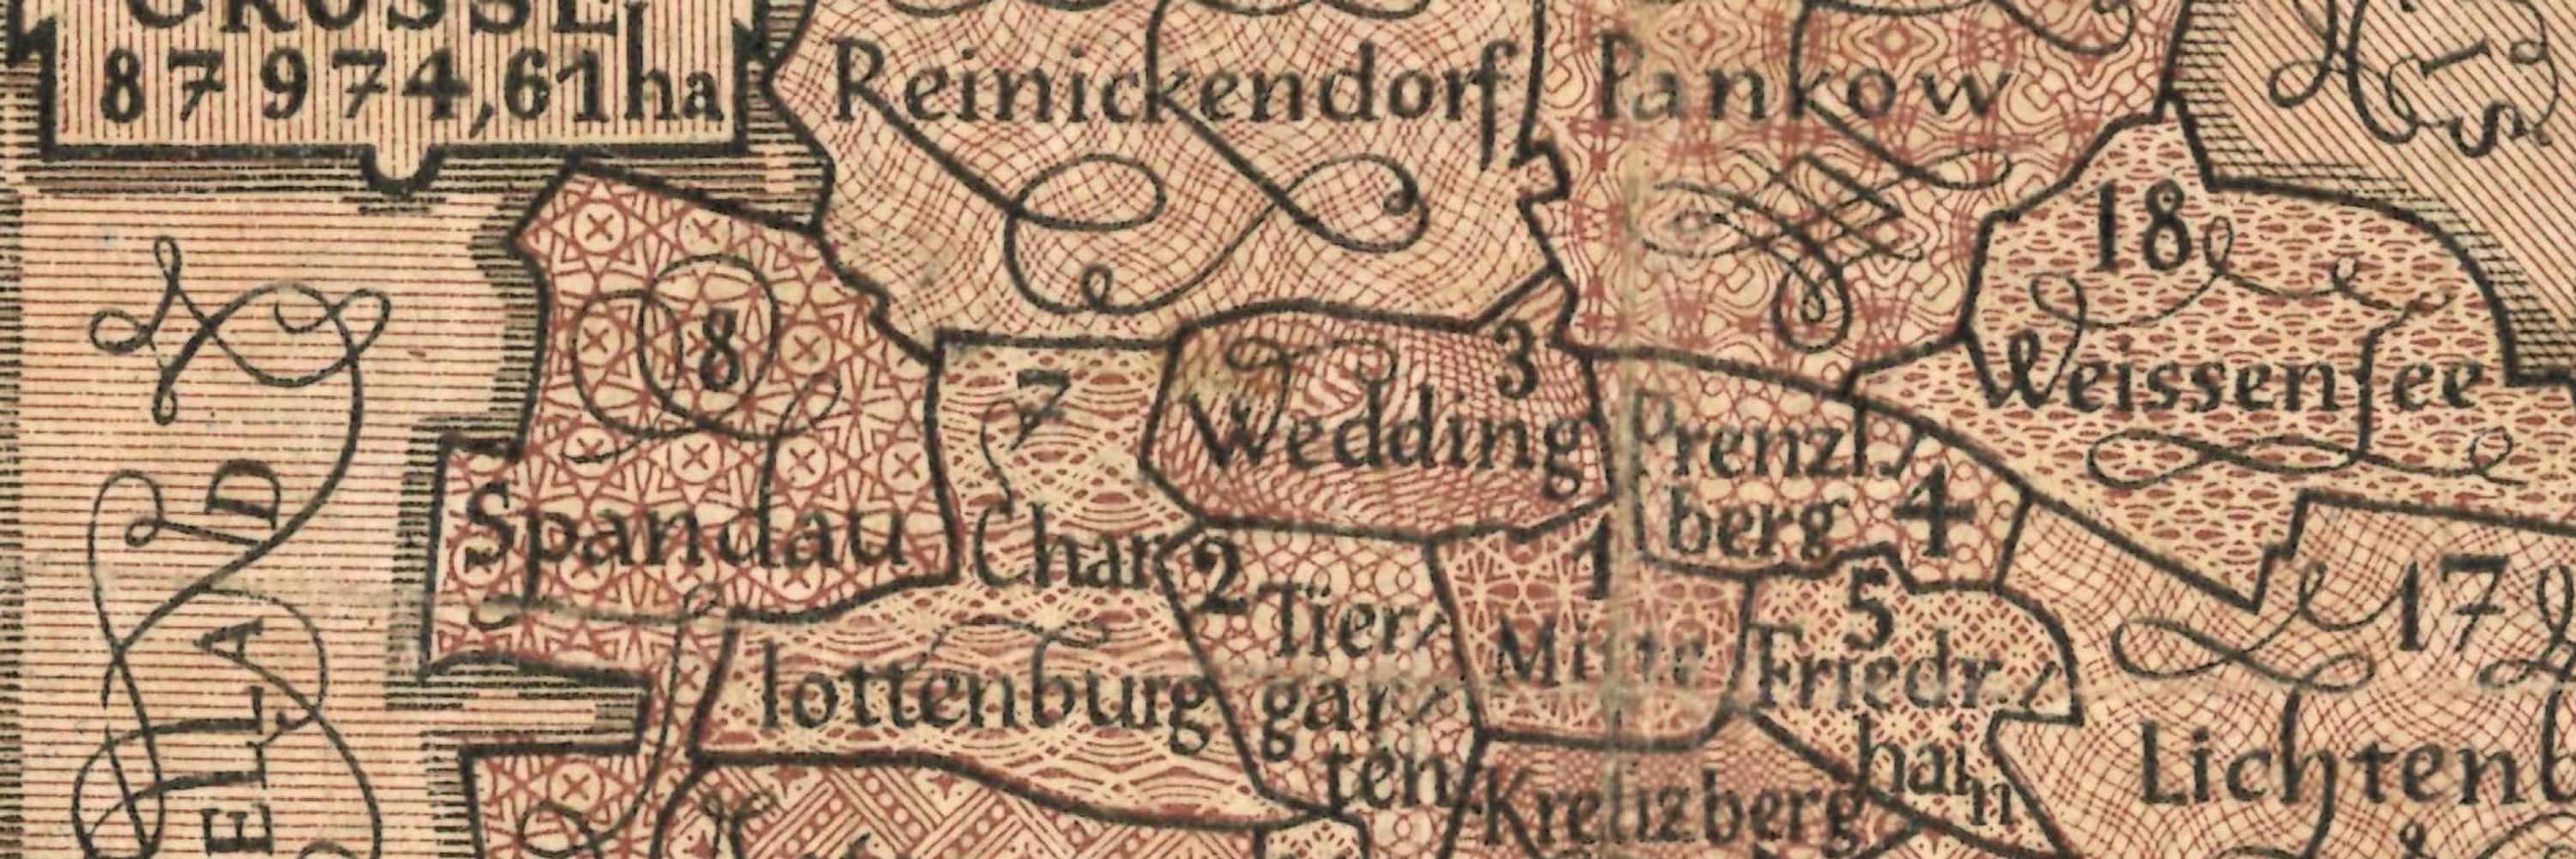 GRÖSSE
87974,61ha
Reinickendorf
Pankow
18
Weissensee
8
Spandau
7
Char
lottenburg
3
Wedding
Prenzl.
berg 4
2 Tier-
gar-
ten
1
Mitte
5
Friedr-
hain
17
Lichtenb
Kreuzberg
ELLAD